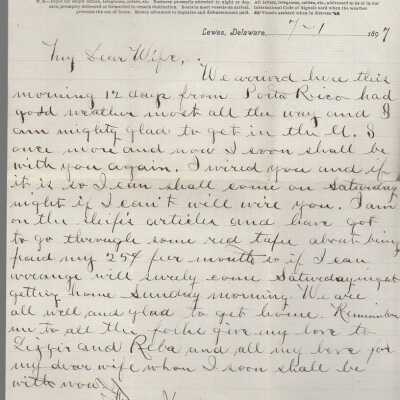 Lewes, Delaware, 7-1 1897
My Dear Wife,
We arrived here this
morning 12 days from Porto Rico had
good weather most all the way and I
am mighty glad to get in the U. S
once more and now I soon shall be
with you again. I wired you and if
it is so I can shall come on Saturday
night if I can't will wire you. I am
on the ship's articles and have got
to go through some red tape about being
paid my 25¢ per month so if I can
arrange will surely come Saturday night
getting home Sunday morning. We are
all well and glad to get home. Remember
me to all the folks give my love to
Lizzie and Reba and all my love for
my dear wife whom I soon shall be
with now